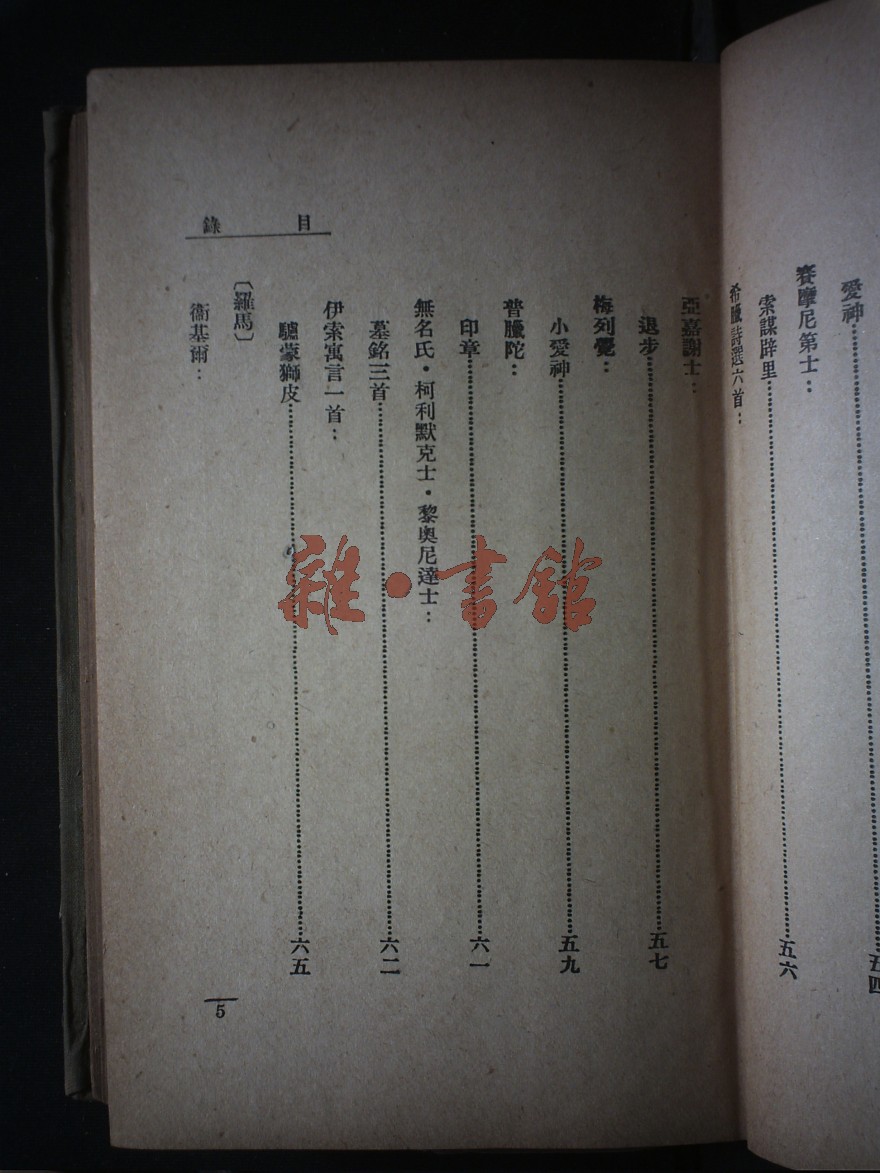 愛神……五四
賽摩尼第士：
索謀辟里……五六
希臘詩選六首：
亞嘉謝士：
退步……五七
梅列覺：
小愛神……五九
普臘陀：
印章……六一
無名氏·柯利默克士·黎奧尼達士：
墓銘三首……六二
伊索寓言一首：
驢蒙獅皮……六五
〔羅馬〕
衞基爾：
目錄
5
雜·書館